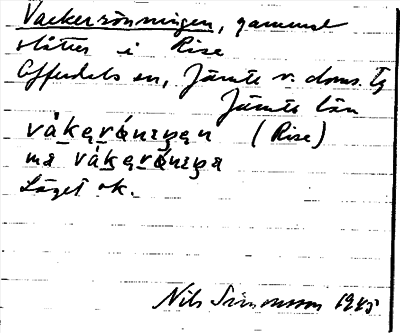 Vackerrönningen, gammal
slåtter i Rise
Offerdals sn, Jämtl. v. doms. tg
Jämtl. län
våkerö́niŋen (Rise)
mæ våkerö́niŋa
Läget ok.
Nils Simonsson 1945